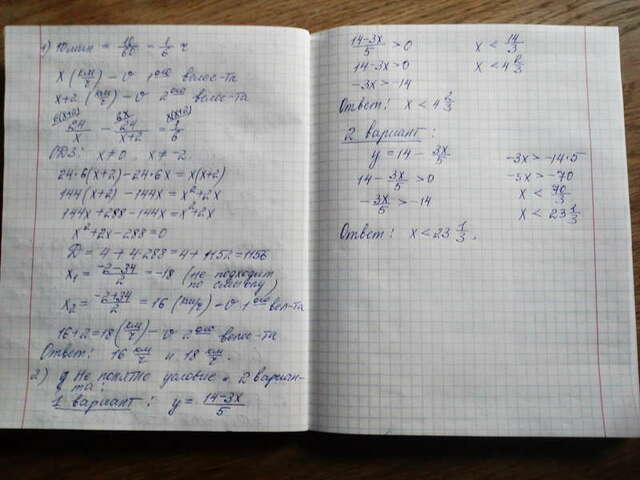 1) 10 мин = 10/60 = 1/6 ч
x (км/ч) – v 1ого велос-та
x+2 (км/ч) – v 2ого велос-та
6(x+2) 6x x(x+2)
24/x – 24/(x+2) = 1/6
ОДЗ: x ≠ 0, x ≠ -2
24·6(x+2) – 24·6x = x(x+2)
144(x+2) – 144x = x²+2x
144x+288–144x = x²+2x
x²+2x–288=0
D = 4+4·288=4+1152=1156
x₁ = (-2-34)/2 = -18 (не подходит по смыслу)
x₂ = (-2+34)/2 = 16 (км/ч) – v 1ого вел-та
16+2=18 (км/ч) – v 2ого велос-та
Ответ: 16 км/ч и 18 км/ч.
2) Не понятно условие. 2 вариан-
та:
1 вариант: y = (14-3x)/5
(14-3x)/5 > 0
14-3x>0
-3x>-14
x < 14/3
x < 4 2/3
Ответ: x < 4 2/3
2 вариант:
y = 14 – 3x/5
14 – 3x/5 > 0
– 3x/5 > -14
-3x > -14·5
-3x > -70
x < 70/3
x < 23 1/3
Ответ: x < 23 1/3.